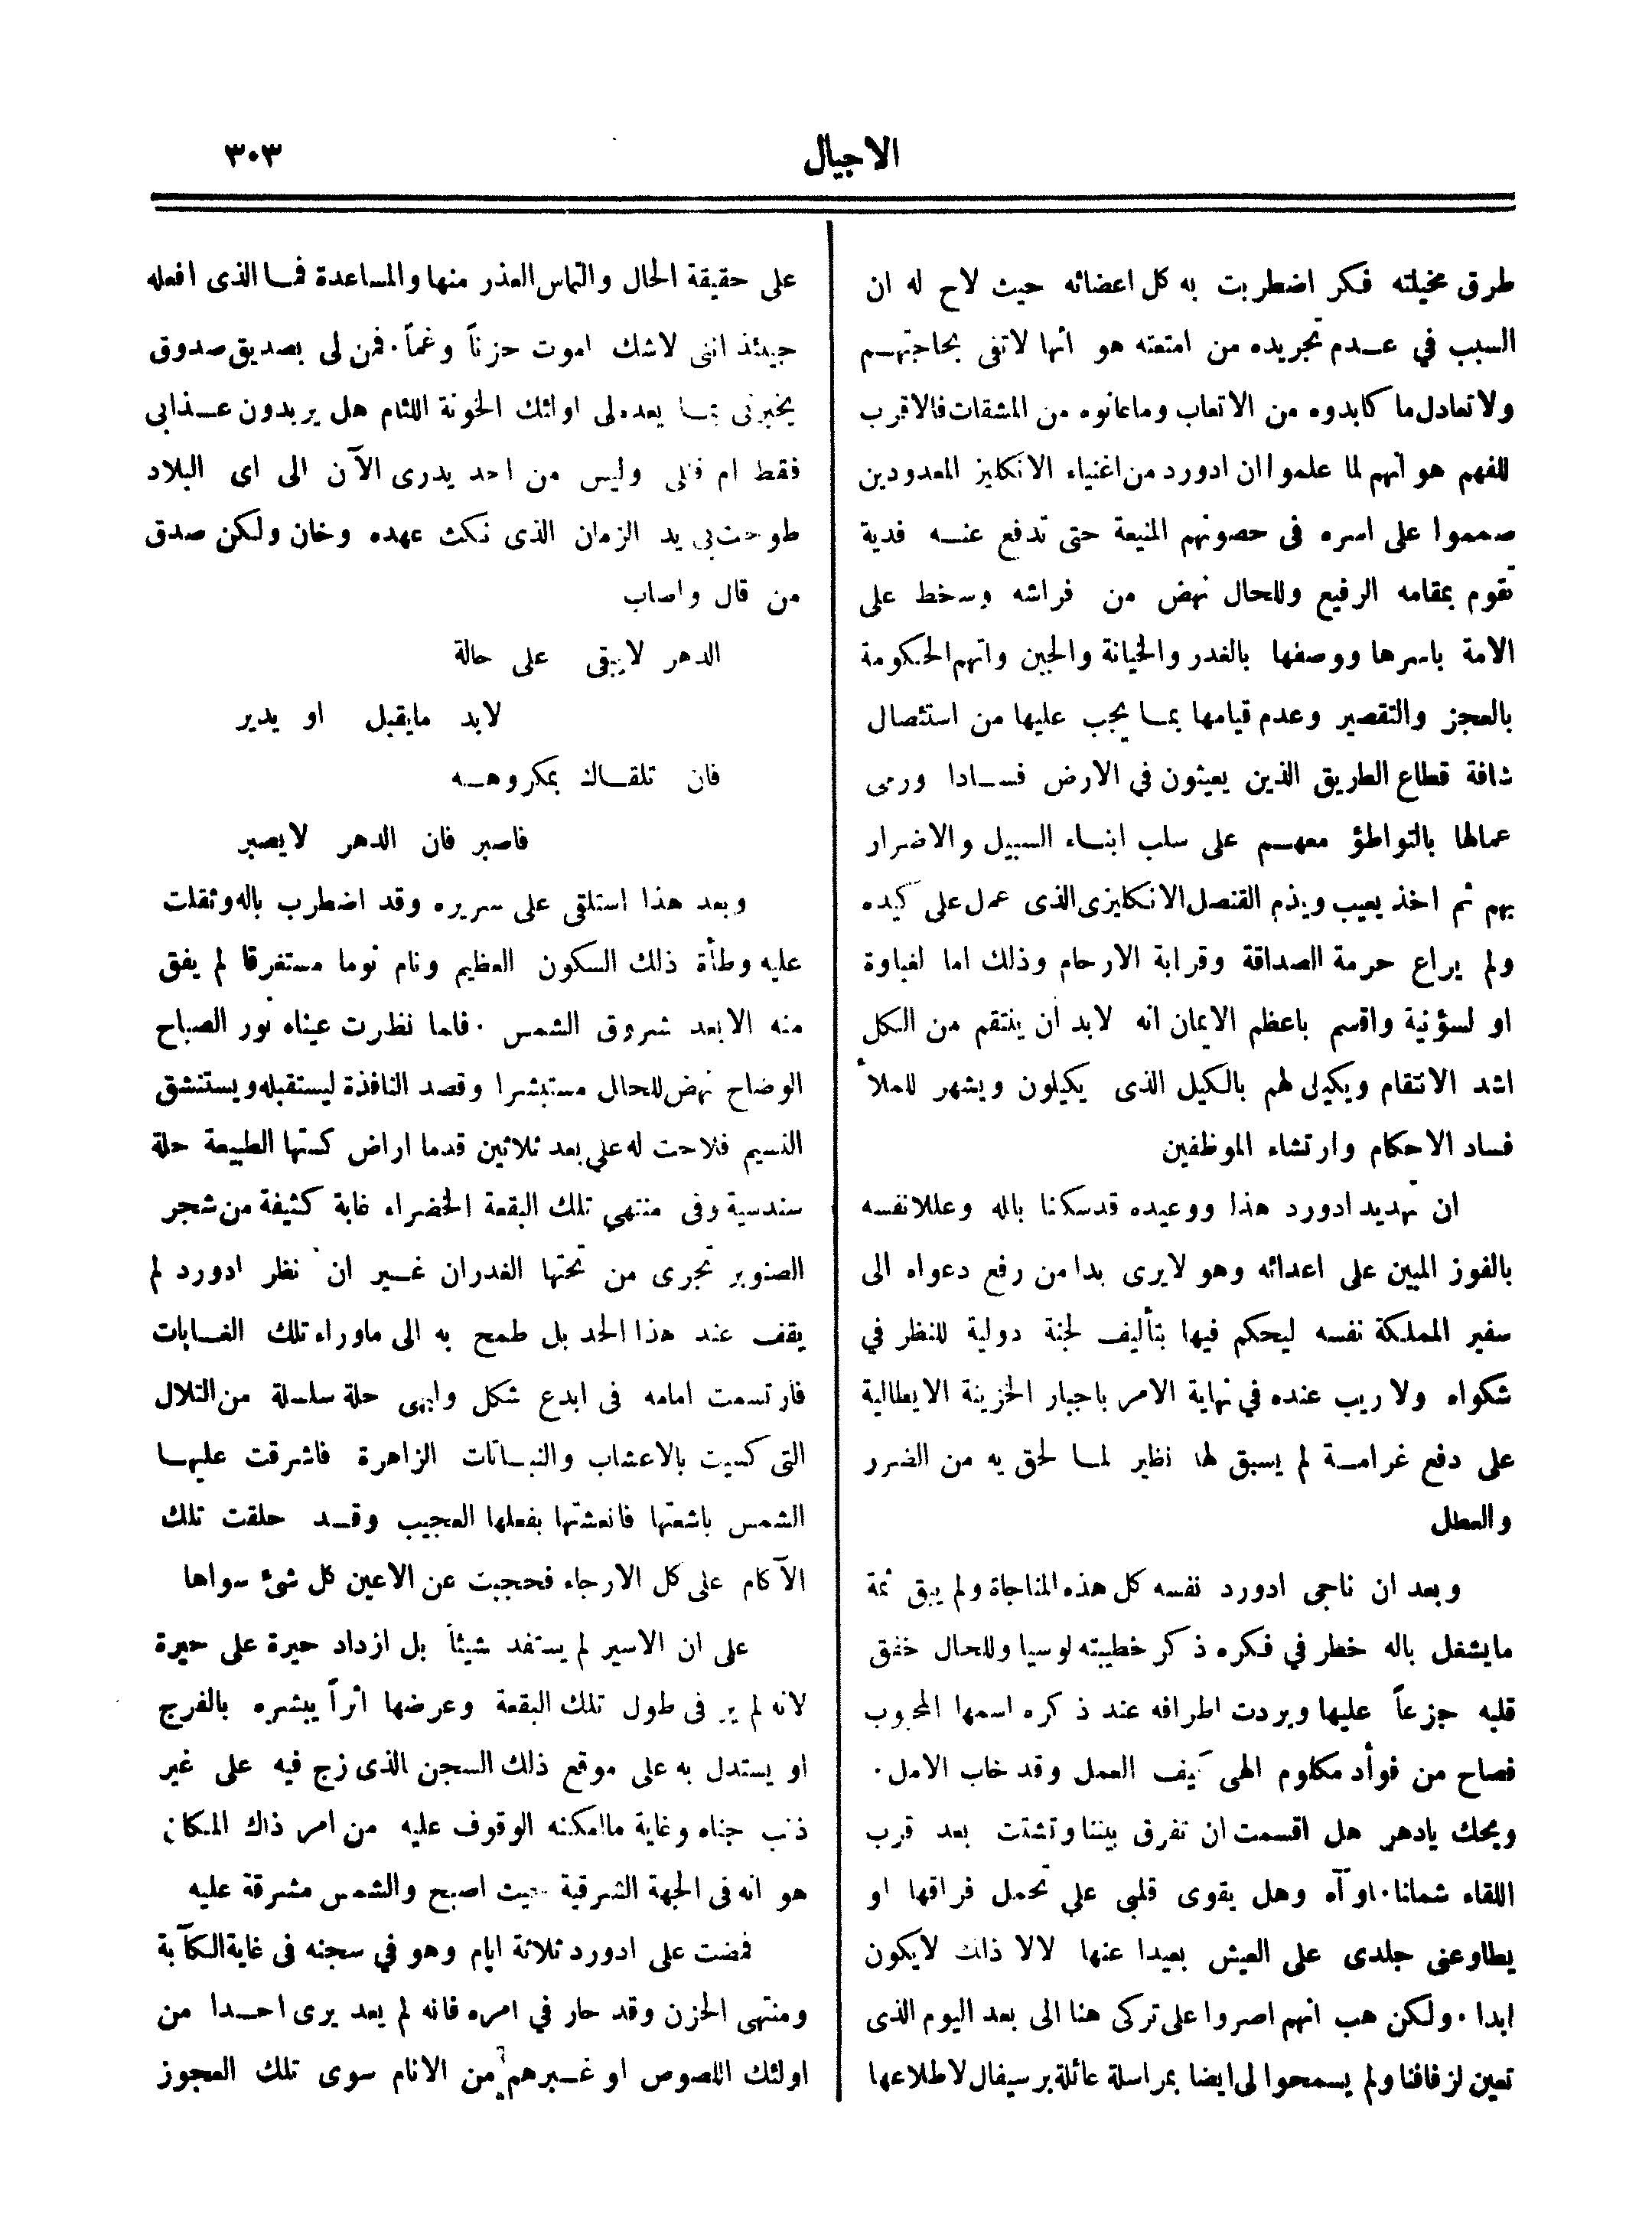 الاجيال
٣٠٣
طرق مخيلته فكر اضطربت به كل اعضائه حيث لاح له ان
السبب في عدم تجريده من امتعته هو انها لاتفى بحاجتهم
ولا تعادل ما كابدوه من الاتعاب وماعانوه من المشقات فالاقرب
للفهم هو انهم لما علموا ان ادورد من اغنياء الانكليز المعدودين
صمموا على اسره فى حصونهم المنيعة حتى تدفع عنه فدية
تقوم بمقامه الرفيع وللحال نهض من فراشه وسخط على
الامة باسرها ووصفها بالغدر والخيانة والجبن واتهم الحكومة
بالعجز والتقصير وعدم قيامها بما يجب عليها من استئصال
شافة قطاع الطريق الذين يعيثون في الارض فسادا ورمى
عمالها بالتواطؤ معهم على سلب ابناء السبيل والاضرار
بهم ثم اخذ يعيب ويذم القنصل الانكليزى الذى عمل على كيده
ولم يراع حرمة الصداقة وقرابة الارحام وذلك اما لغباوة
او لسؤنية واقسم باعظم الايمان انه لابد ان ينتقم من الكل
اشد الانتقام ويكيلى لهم بالكيل الذى يكيلون ويشهر للملأ
فساد الاحكام وارتشاء الموظفين
ان تهديد ادورد هذا ووعيده قدسكنا باله وعللا نفسه
بالفوز المبين على اعدائه وهو لايرى بدا من رفع دعواه الى
سفير المملكة نفسه ليحكم فيها بتأليف لجنة دولية للنظر في
شكواه ولا ريب عنده في نهاية الامر باجبار الخزينة الايطالية
على دفع غرامة لم يسبق لها نظير لما لحق به من الضرر
والعطل
وبعد ان ناجى ادورد نفسه كل هذه المناجاة ولم يبق ثمة
مايشغل باله خطر في فكره ذكر خطيبته لوسيا وللحال خفق
قلبه جزعاً عليها وبردت اطرافه عند ذكره اسمها المحبوب
فصاح من فوأد مكلوم الهى كيف العمل وقد خاب الامل ٠
ويحك يادهر هل اقسمت ان تفرق بيننا وتشتت بعد قرب
اللقاء شملنا ٠ اوآه وهل يقوى قلبى على تحمل فراقها او
يطاوعنى جلدى على العيش بعيدا عنها لالا ذلك لايكون
ابدا ٠ ولكن هب انهم اصروا على تركى هنا الى بعد اليوم الذى
تعين لزفافنا ولم يسمحوا لى ايضا بمراسلة عائلة برسيفال لاطلاعها
على حقيقة الحال والتماس العذر منها والمساعدة فما الذى افعله
حينئذ اننى لاشك اموت حزناً وغماً ٠ فمن لى بصديق صدوق
يخبرنى بما يعده لى اولئك الخونة اللئام هل يريدون عذابى
فقط ام قتلى وليس من احد يدرى الآن الى اى البلاد
طوحت بى يد الزمان الذى نكث عهده وخان ولكن صدق
من قال واصاب
الدهر لايبقى على حالة
لابد مايقبل او يدير
فان تلقاك بمكروهه
فاصبر فان الدهر لايصبر
وبعد هذا استلقى على سريره وقد اضطرب باله وثقلت
عليه وطأة ذلك السكون العظيم ونام نوما مستغرقا لم يفق
منه الا بعد شروق الشمس ٠ فلما نظرت عيناه نور الصباح
الوضاح نهض للحال مستبشرا وقصد النافذة ليستقبله ويستنشق
النسيم فلاحت له على بعد ثلاثين قدما اراض كستها الطبيعة حلة
سندسية وفى منتهى تلك البقعة الخضراء غابة كثيفة من شجر
الصنوبر تجرى من تحتها الغدران غير ان نظر ادورد لم
يقف عند هذا الحد بل طمح به الى ماوراء تلك الغابات
فارتسمت امامه فى ابدع شكل وابهى حلة سلسلة من التلال
التى كسيت بالاعشاب والنباتات الزاهرة فاشرقت عليها
الشمس باشعتها فانعشتها بفعلها العجيب وقد حلقت تلك
الآكام على كل الارجاء فحجبت عن الاعين كل شئ سواها
على ان الاسير لم يستفد شيئاً بل ازداد حيرة على حيرة
لانه لم ير فى طول تلك البقعة وعرضها اثراً يبشره بالفرج
او يستدل به على موقع ذلك السجن الذى زج فيه على غير
ذنب جناه وغاية ماامكنه الوقوف عليه من امر ذاك المكان
هو انه فى الجهة الشرقية حيث اصبح والشمس مشرقة عليه
فمضت على ادورد ثلاثة ايام وهو في سجنه فى غاية الكآبة
ومنتهى الحزن وقد حار في امره فانه لم يعد يرى احدا من
اولئك اللصوص او غيرهم من الانام سوى تلك العجوز